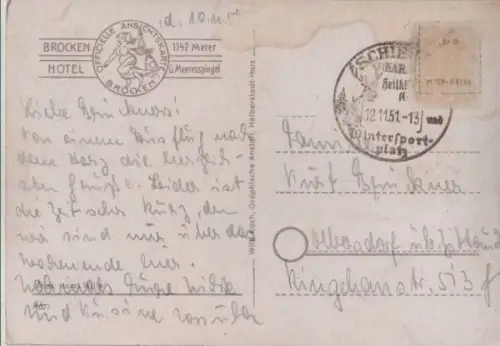 d. 10.11.
BROCKEN
HOTEL
OFFIZIELLE ANSICHTSKARTE
BROCKEN
1142 Meter
ü. Meeresspiegel
Liebe Brückners!
Von einem Ausflug nach
dem Harz die herzlich-
sten Grüße. Leider ist
die Zeit sehr kurz, denn
wir sind nur über das
Wochenende hier.
und
Graphische Anstalt, Halberstadt-Harz
SCHIE
HAR
Heilkl
12.11.51.-13
und
Wintersport-
platz
Familie
Kurt Brückner
Olbersdorf üb. Zittau
Str. 513